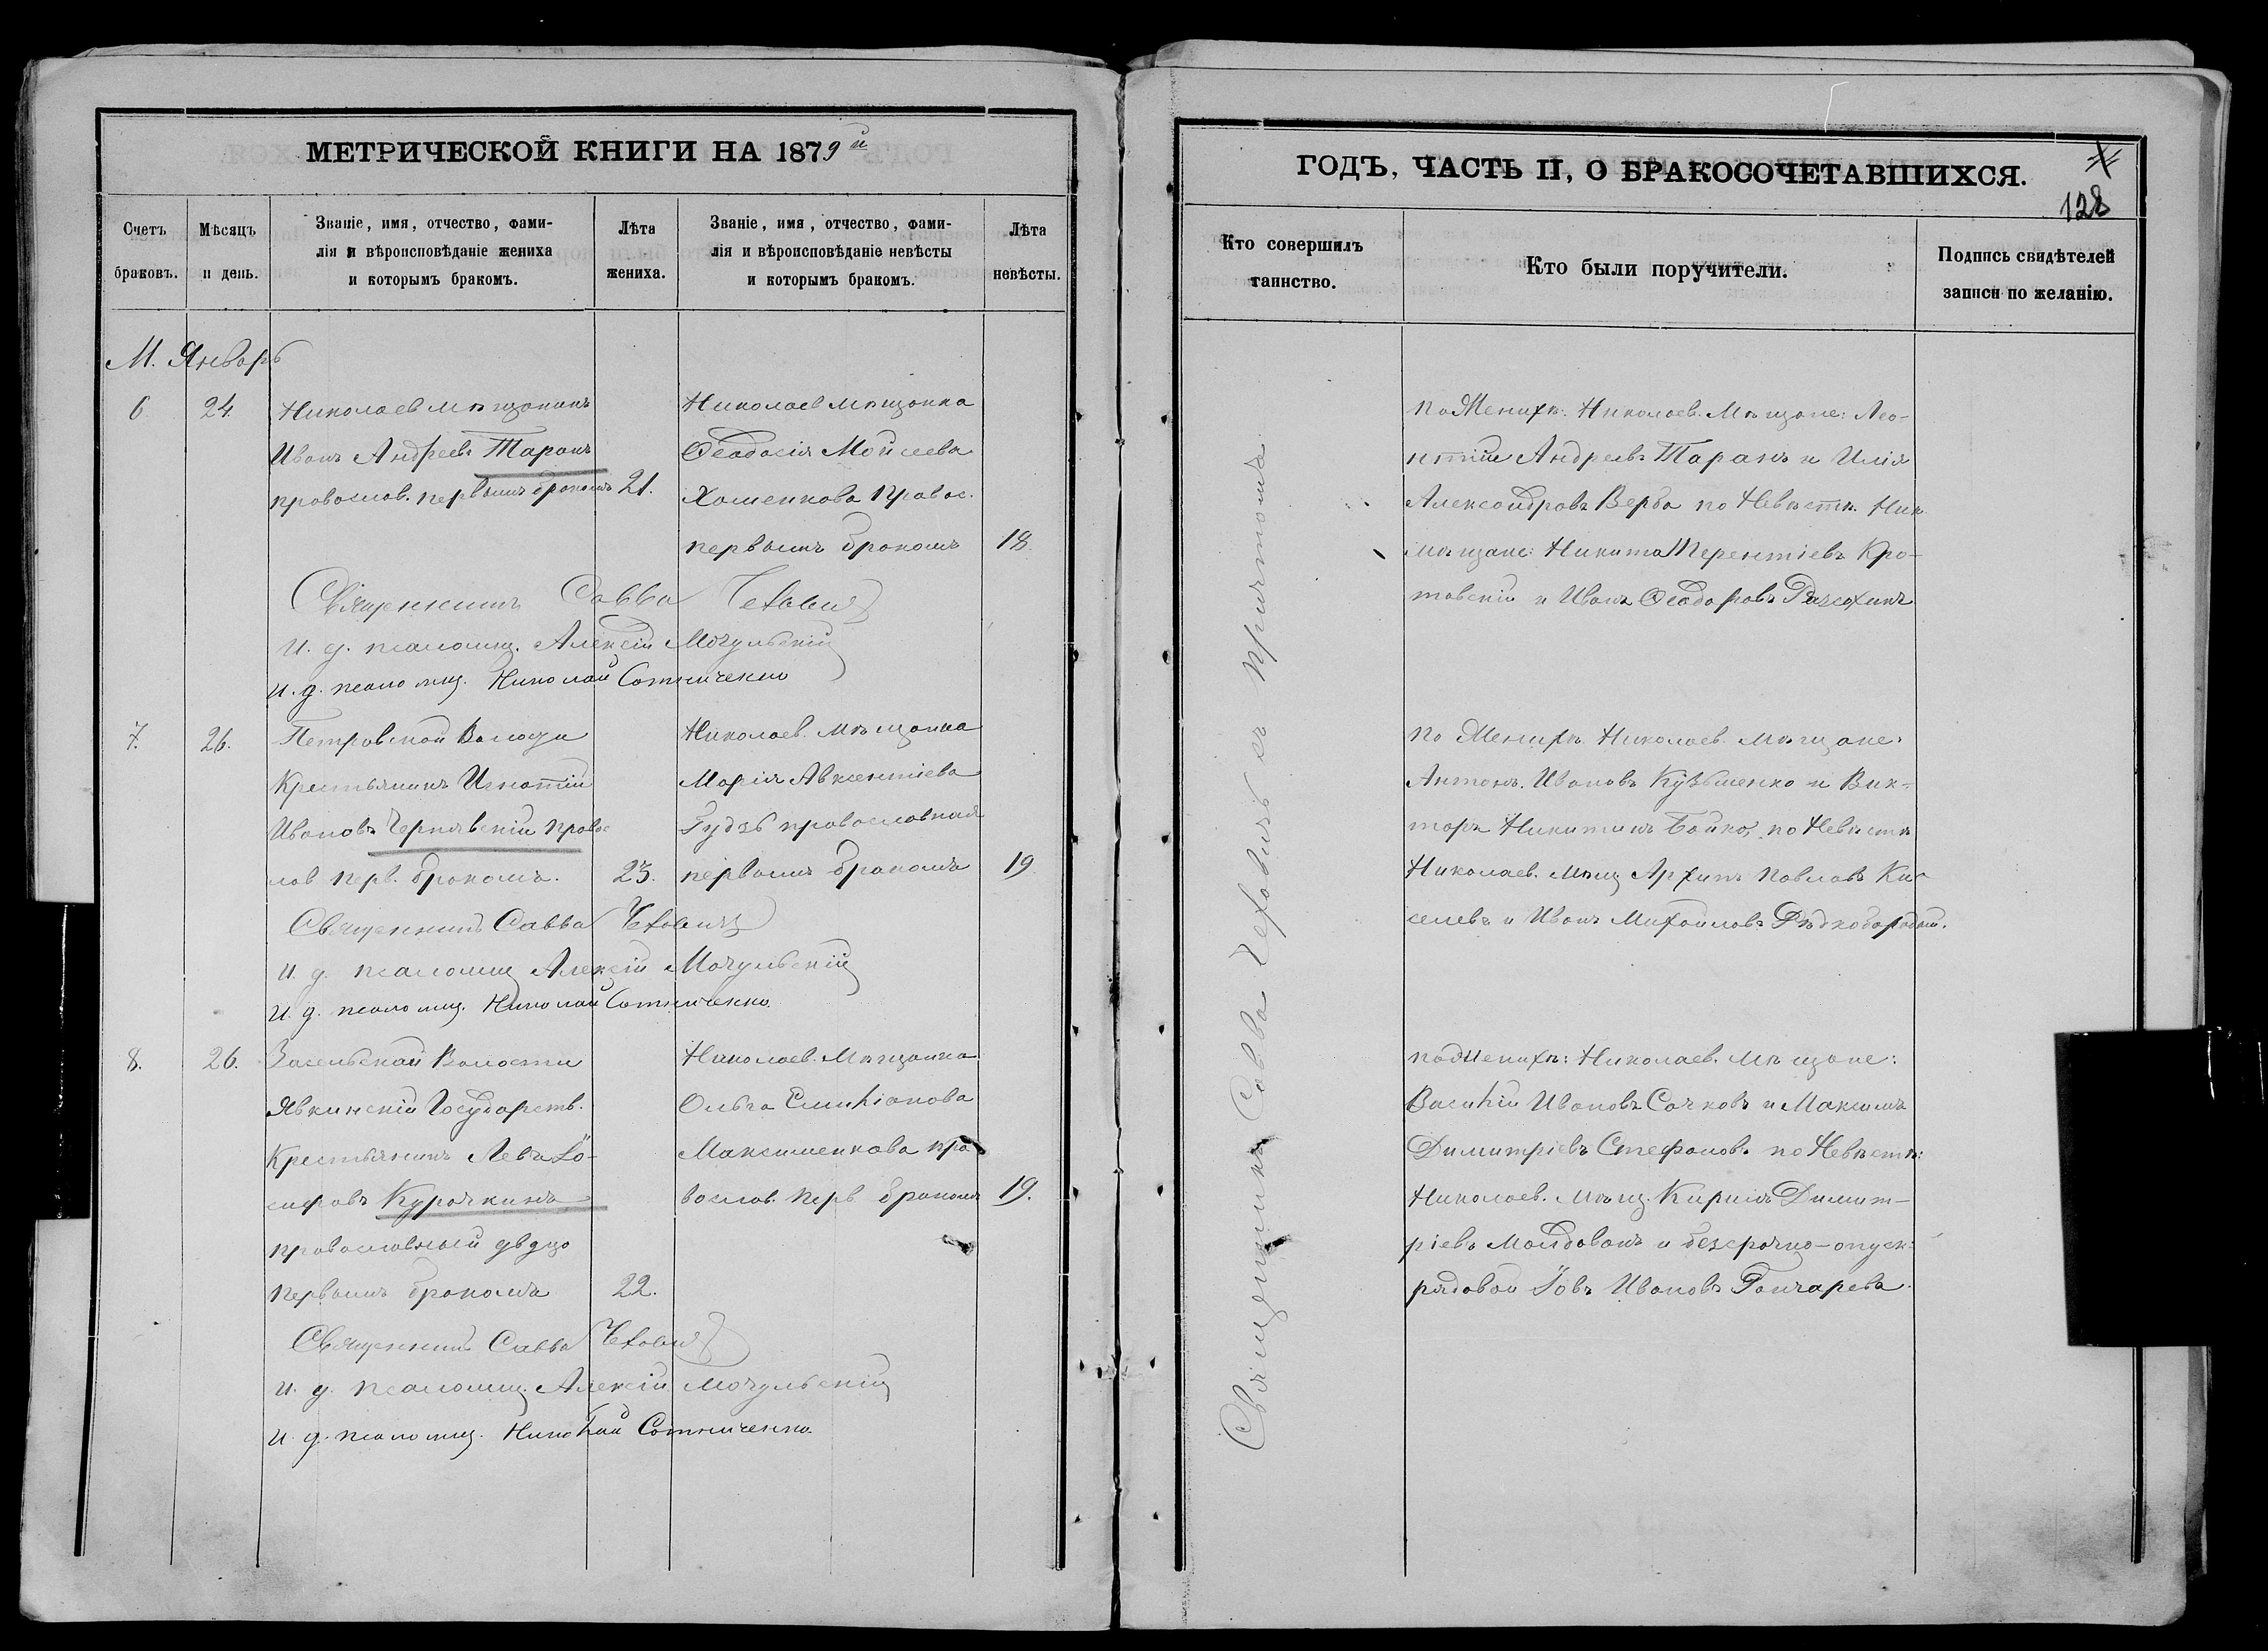 МЕТРИЧЕСКОЙ КНИГИ НА 1879й
Счетъ браковъ.
Мѣсяцъ и день.
Званіе, имя, отчество, фами-
лія и вѣроисповѣданіе жениха
и которымъ бракомъ.
Лѣта жениха.
Званіе, имя, отчество, фами-
лія и вѣроисповѣданіе невѣсты
и которымъ бракомъ.
Лѣта невѣсты.
М. Январь
6
24
Николаев мѣщанинъ
Иванъ Андреевъ Таранъ
православ. первымъ бракомъ
21.
Николаев мѣщанка
Ѳеодосія Мойсеева
Хоменкова правос.
первымъ бракомъ
18.
Священникъ Савва Чеховичъ
и. д. псаломщ. Алексій Мочульскій
и. д. псаломщ. Николай Сотниченко
7.
26.
Петровской Волости
Крестьянинъ Игнатій
Ивановъ Чернявскій правос
лов перв. бракомъ.
23.
Николаев. мѣщанка
Марія Авксентіева
Гудзь православная
первымъ бракомъ
19
Священникъ Савва Чеховичъ
и. д. псаломщ Алексій Мочульскій
и. д. псаломщ. Николай Сотниченко
8.
26.
Засельской Волости
Явкинскій Государств.
Крестьянинъ Левъ Іо-
сифовъ Курочкинъ
православный
первымъ бракомъ
22.
Николаев. Мѣщанка
Ольга Емиліанова
Максименкова пра
вослав. перв бракомъ
19.
Священникъ Савва Чеховичъ
и. д. псаломщ. Алексій Мочульскій
и. д. псаломщ. Николай Сотниченко
ГОДЪ, ЧАСТЬ II, О БРАКОСОЧЕТАВШИХСЯ.
128
Кто совершилъ таинство.
Кто были поручители.
Подпись свидѣтелей
записи по желанію.
Священникъ Савва Чеховичъ съ причтомъ
по Женихѣ: Николаев. Мѣщане: Лео-
нтій Андреевъ Таранъ и Илія
Александровъ Верба по Невѣстѣ Ник.
мѣщане: Никита Терентіевъ Кро-
товскій и Иванъ Ѳеодоровъ
по Женихѣ Николаев. мѣщане:
Антонъ Ивановъ Кузьменко и Вик-
торъ Никитинъ Бойко, по Невѣстѣ
Николаев. мѣщ Архипъ Павловъ Ки-
селевъ и Иванъ Михайловъ Рѣдкобородый.
по Женихѣ: Николаев. Мѣщане:
Василій Ивановъ Сачковъ и Максимъ
Димитріевъ Стефановъ по Невѣстѣ:
Николаев. мѣщ. Кирилъ Димит-
ріевъ Молдованъ и безсрочно-отпуск:
рядовой Іовъ Ивановъ Гончаревъ.